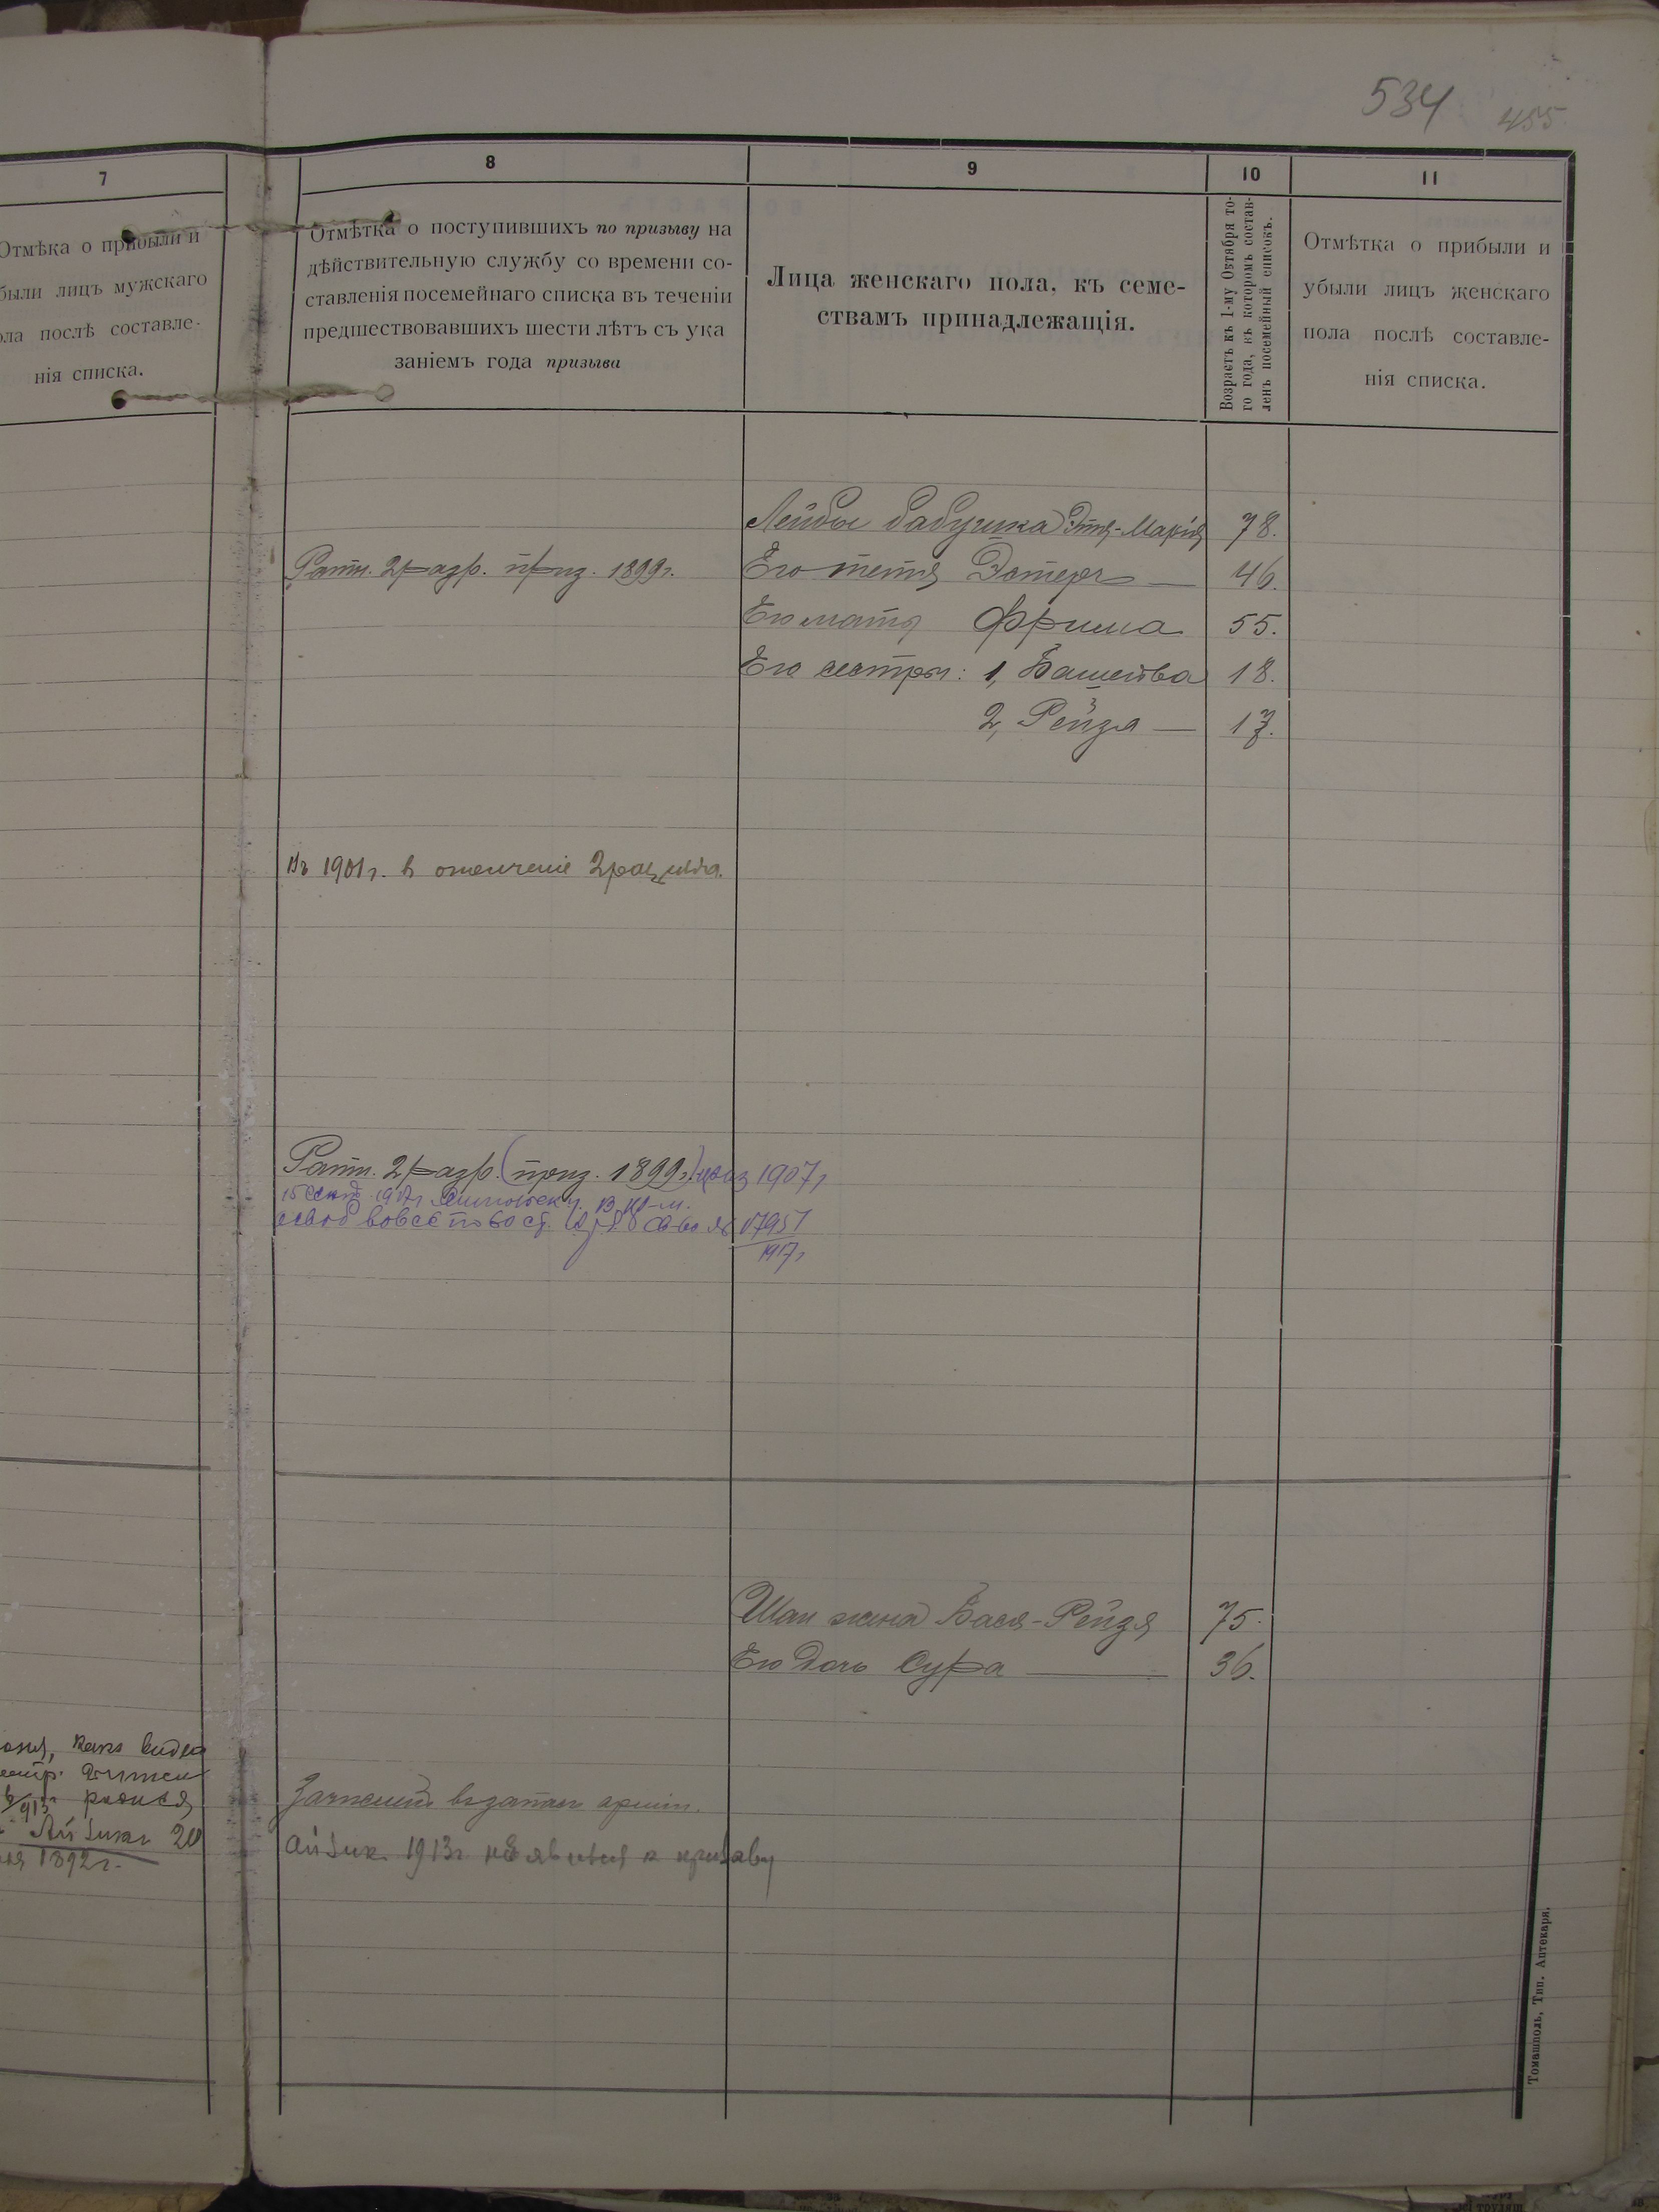 534 455.
7
Отмѣка о прибыли и
были лицъ мужскаго
ола послѣ составле-
нія списка.
8
Отмѣтка о поступившихъ по призыву на
дѣйствительную службу со времени со-
ставленія посемейнаго списка въ теченіи
предшествовавшихъ шести лѣтъ съ ука
заніемъ года призыва
9
Лица женскаго пола, къ семе-
ствамъ принадлежащія.
10
Возрастъ къ 1-му Октября то-
го года, въ которомъ состав-
ленъ посемейный списокъ.
11
Отмѣтка о прибыли и
убыли лицъ женскаго
пола послѣ составле-
нія списка.
Лейбы бабушка Этя-Марія 78.
Ратн. 2 разр. приз. 1899г. Его тетя Эстеръ — 46.
Его мать Фрима 55.
Его сестры: 1, Башейва 18.
2, Рейзя — 17.
Въ 1901г. в ополченіе 2 разряда.
Ратн. 2 разр. (приз. 1899г.) приз 1907г
15 1917г
вовсе по 60 ст. 17951
1917г
Шаи жена Бася-Рейзя 75.
Его дочь Сура — 36.
какъ видно
913г
Айзикъ 20
1892г.
Зачисленъ въ запасъ арміи.
Айзик 1913г. не явился к призыву
Томашполь, Тип. Аптекаря.